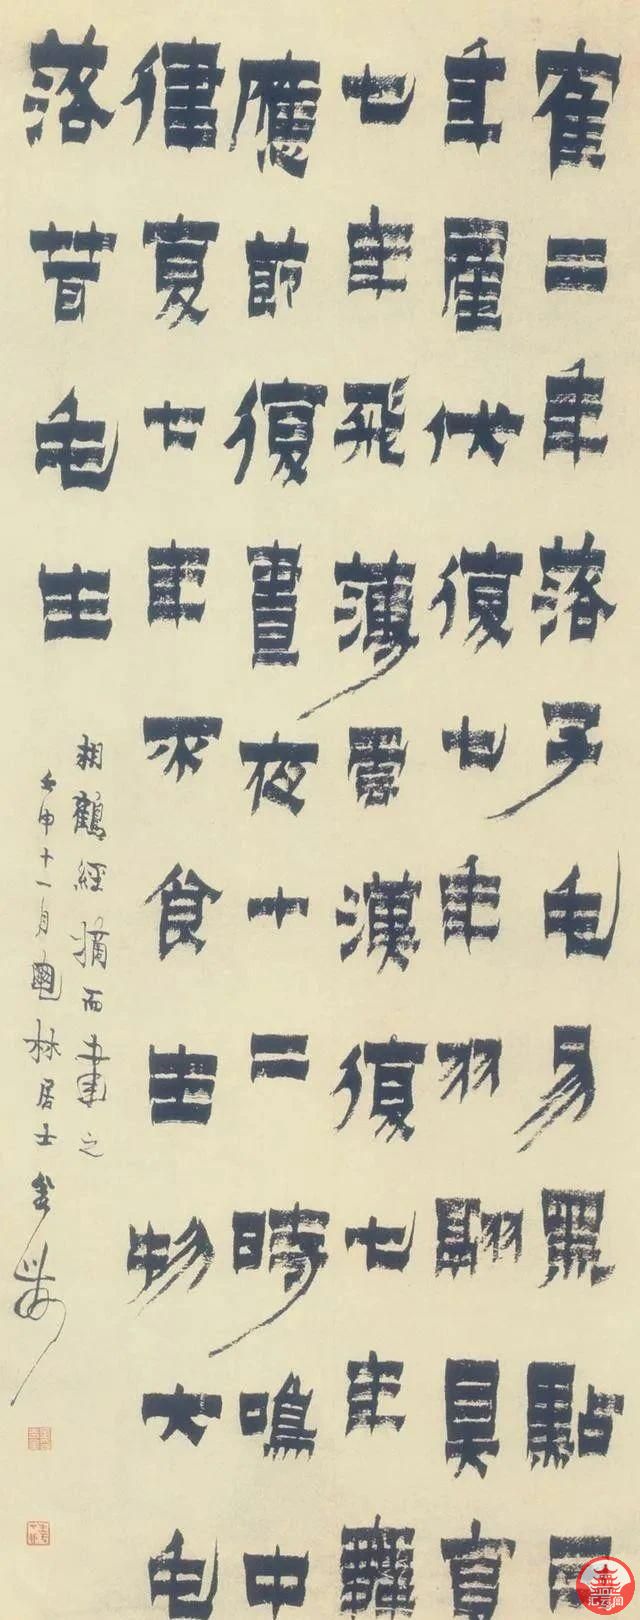 隺二年落子毛易黑點三
年產伏復七年羽翮具复
七年飛薄雲漢復七年舞
應節復晝夜十二時鳴中
律复七年不食生物大毛
落茸毛生
相鶴經摘而書之
壬申十一月林居士